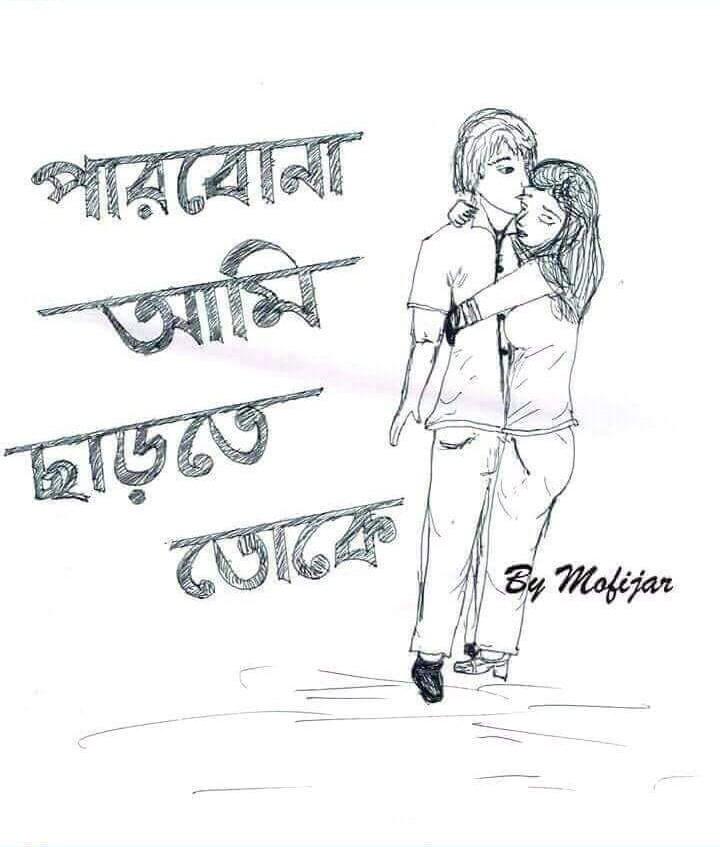 পারবোনা
আমি
ছাড়তে
তোকে
By Mofijar